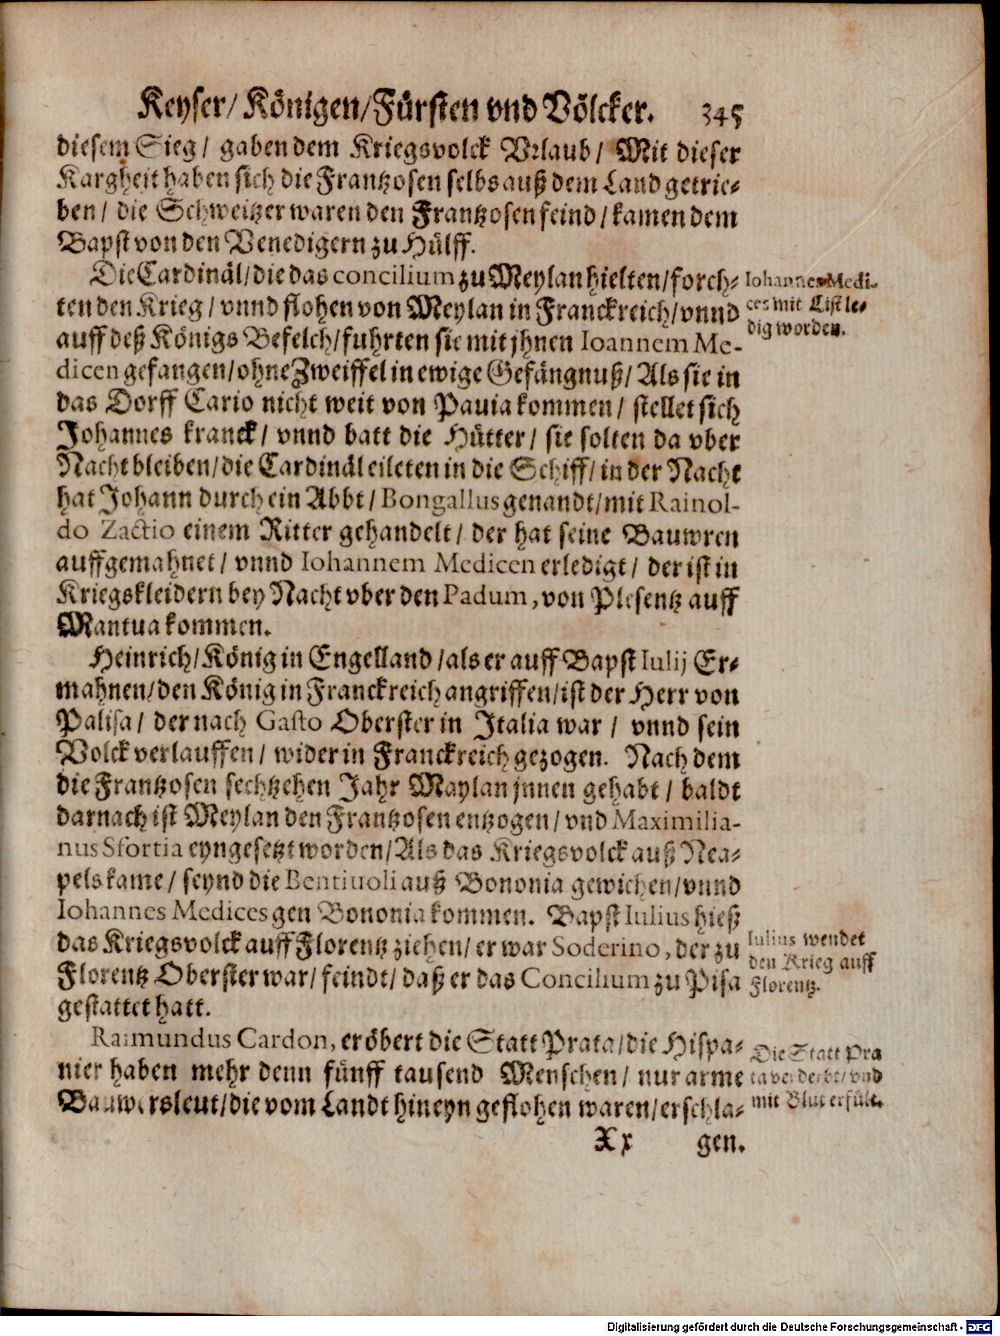 Keyser/ Königen/Fürsten vnd Völcker. 345
diesem Sieg/ gaben dem Kriegsvolck Vrlaub/ Mit dieser
Kargheit haben sich die Frantzosen selbs auß dem Land getrie-
ben/ die Schweitzer waren den Frantzosen feind/ kamen dem
Bapst von den Venedigern zu Hülff.
Die Cardinäl/die das concilium zu Meylan hielten/forch-
ten den Krieg/ vnnd flohen von Meylan in Franckreich/vnnd
auff deß Königs Befelch/fuhrten sie mit jhnen Ioannem Me-
dicen gefangen/ohne Zweiffel in ewige Gefängnuß/ Als sie in
das Dorff Cario nicht weit von Pauia kommen/ stellet sich
Johannes kranck/ vnnd batt die Hütter/ sie solten da vber
Nacht bleiben/die Cardinäl eileten in die Schiff/ in der Nacht
hat Johann durch ein Abbt/ Bongallus genandt/mit Rainol-
do Zactio einem Ritter gehandelt/ der hat seine Bauwren
auffgemahnet/ vnnd Iohannem Medicen erledigt/ der ist in
Kriegskleidern bey Nacht vber den Padum, von Plesentz auff
Mantua kommen.
Iohannes Medi-
ces mit List le-
dig worden.
Heinrich/König in Engelland/als er auff Bapst Iulij Er-
mahnen/den König in Franckreich angriffen/ist der Herr von
Palisa/ der nach Gasto Oberster in Italia war/ vnnd sein
Volck verlauffen/ wider in Franckreich gezogen. Nach dem
die Frantzosen sechtzehen Jahr Maylan jnnen gehabt/ baldt
darnach ist Meylan den Frantzosen entzogen/ vnd Maximilia-
nus Sfortia eyngesetzt worden/Als das Kriegsvolck auß Nea-
pels kame/ seynd die Bentiuoli auß Bononia gewichen/vnnd
Iohannes Medices gen Bononia kommen. Bapst Iulius hieß
das Kriegsvolck auff Florentz ziehen/ er war Soderino, der zu
Florentz Oberster war/ feindt/ daß er das Concilium zu Pisa
gestattet hatt.
Iulius wendet
den Krieg auff
Florentz.
Raimundus Cardon, eröbert die Statt Prata/die Hispa-
nier haben mehr denn fünff tausend Menschen/ nur arme
Bauwersleut/die vom Landt hineyn geflohen waren/erschla-
Die Statt Pra
ta verderbt/ vnd
mit Blut erfült.
Xx gen.
Digitalisierung gefördert durch die Deutsche Forschungsgemeinschaft - DFG